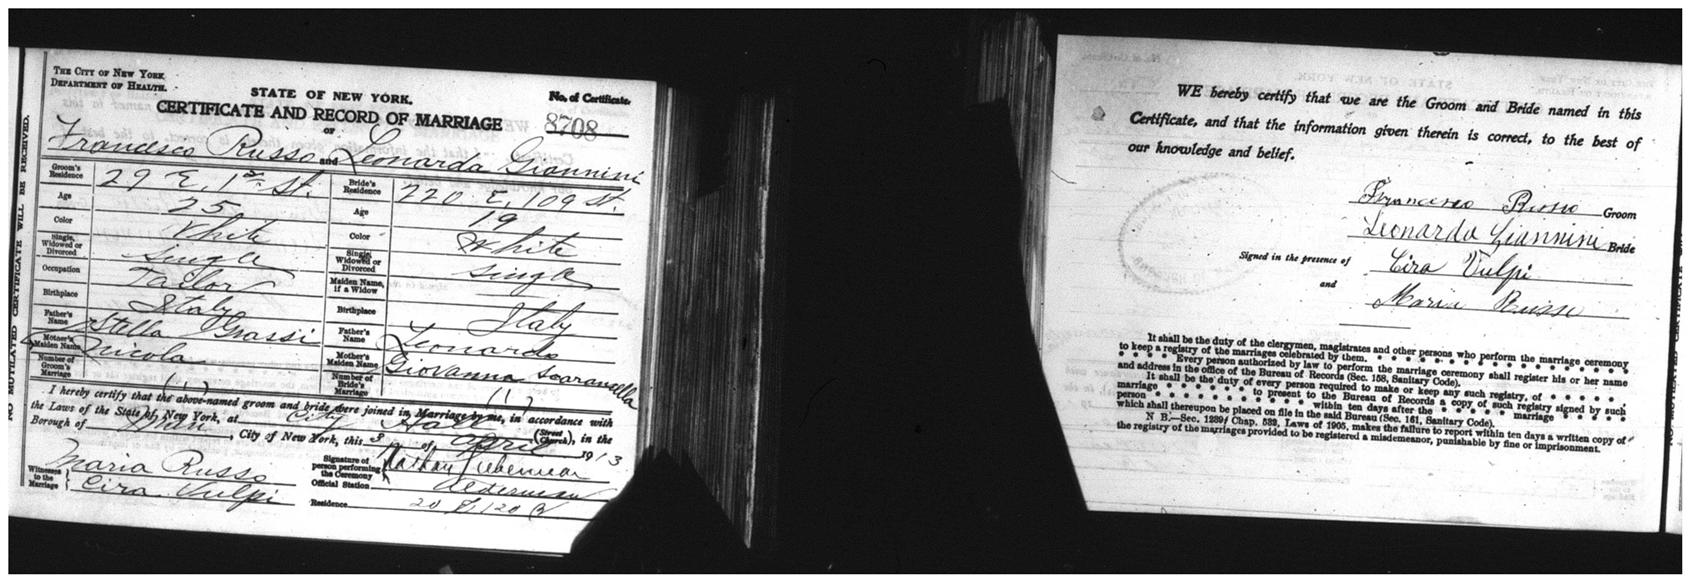 NO MUTILATED CERTIFICATE WILL BE RECEIVED.
THE CITY OF NEW YORK.
DEPARTMENT OF HEALTH.
STATE OF NEW YORK.
No. of Certificate.
CERTIFICATE AND RECORD OF MARRIAGE
8708
OF
Francesco Russo and Leonarda Giannini
Groom's Residence 29 E. 1st St. Bride's Residence 220 E. 109 St.
Age 25 Age 19
Color White Color White
Single, Widowed or Divorced Single Single, Widowed or Divorced Single
Occupation Tailor Maiden Name, if a Widow
Birthplace Italy Birthplace Italy
Father's Name Stella Grassi Father's Name Leonardo
Mother's Maiden Name Nicola Mother's Maiden Name Giovanna
Number of Groom's Marriage (1) Number of Bride's Marriage (1)
I hereby certify that the above-named groom and bride were joined in Marriage by me, in accordance with
the Laws of the State of New York, at City Hall (Street Church), in the
Borough of Man , City of New York, this 3 of April 1913
Maria Russo
Cira Vulpi
Witnesses to the Marriage
Signature of person performing the Ceremony Nathan
Official Station Alderman
Residence 20 120
WE hereby certify that we are the Groom and Bride named in this
Certificate, and that the information given therein is correct, to the best of
our knowledge and belief.
Francesco Russo Groom
Leonarda Giannini Bride
Signed in the presence of Cira Vulpi
and Maria Russo
It shall be the duty of the clergymen, magistrates and other persons who perform the marriage ceremony
to keep a registry of the marriages celebrated by them. * * * * * * * * * * * *
* * * * Every person authorized by law to perform the marriage ceremony shall register his or her name
and address in the office of the Bureau of Records (Sec. 158, Sanitary Code).
It shall be the duty of every person required to make or keep any such registry, of * * * * *
marriage * * * * * to present to the Bureau of Records a copy of such registry signed by such
person * * * * * * * within ten days after the * * * * * marriage * * * *
which shall thereupon be placed on file in the said Bureau (Sec. 161, Sanitary Code).
N B.—Sec. 1239, Chap. 532, Laws of 1905, makes the failure to report within ten days a written copy of
the registry of the marriages provided to be registered a misdemeanor, punishable by fine or imprisonment.